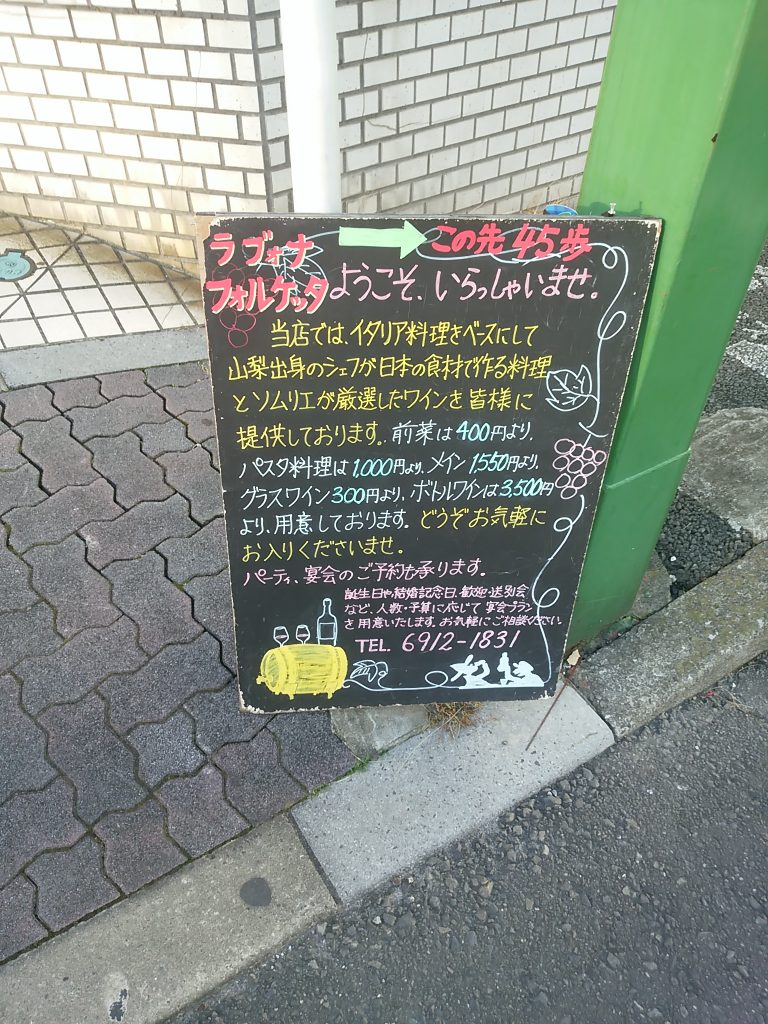 ラ ブォナ
フォルケッタ
この先 45歩
ようこそ、いらっしゃいませ。
当店では、イタリア料理をベースにして
山梨出身のシェフが日本の食材で作る料理
とソムリエが厳選したワインを皆様に
提供しております。前菜は400円より、
パスタ料理は1,000円より、メイン1,550円より、
グラスワイン300円より、ボトルワインは3,500円
より、用意しております。どうぞお気軽に
お入りくださいませ。
パーティ、宴会のご予約も承ります。
誕生日や、結婚記念日、歓迎・送別会
など、人数・予算に応じて宴会プラン
を用意いたします。お気軽にご相談ください。
TEL. 6912-1831